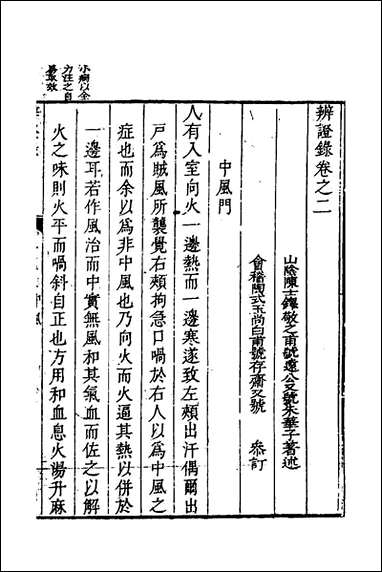 辨證錄卷之二
山陰陳士鐸敬之甫號遠公又號朱華子著述
會稽陶式玉尚白甫號存齋又號 參訂
中風門
人有入室向火一邊熱而一邊寒遂致左頰出汗偶爾出
戶爲賊風所襲覺右頰拘急口喎於右人以爲中風之
症也而余以爲非中風也乃向火而火逼其熱以併於
一邊耳若作風治而中實無風和其氣血而佐之以解
火之味則火平而喎斜自正也方用和血息火湯升麻
小病以全
力注之自
易取效